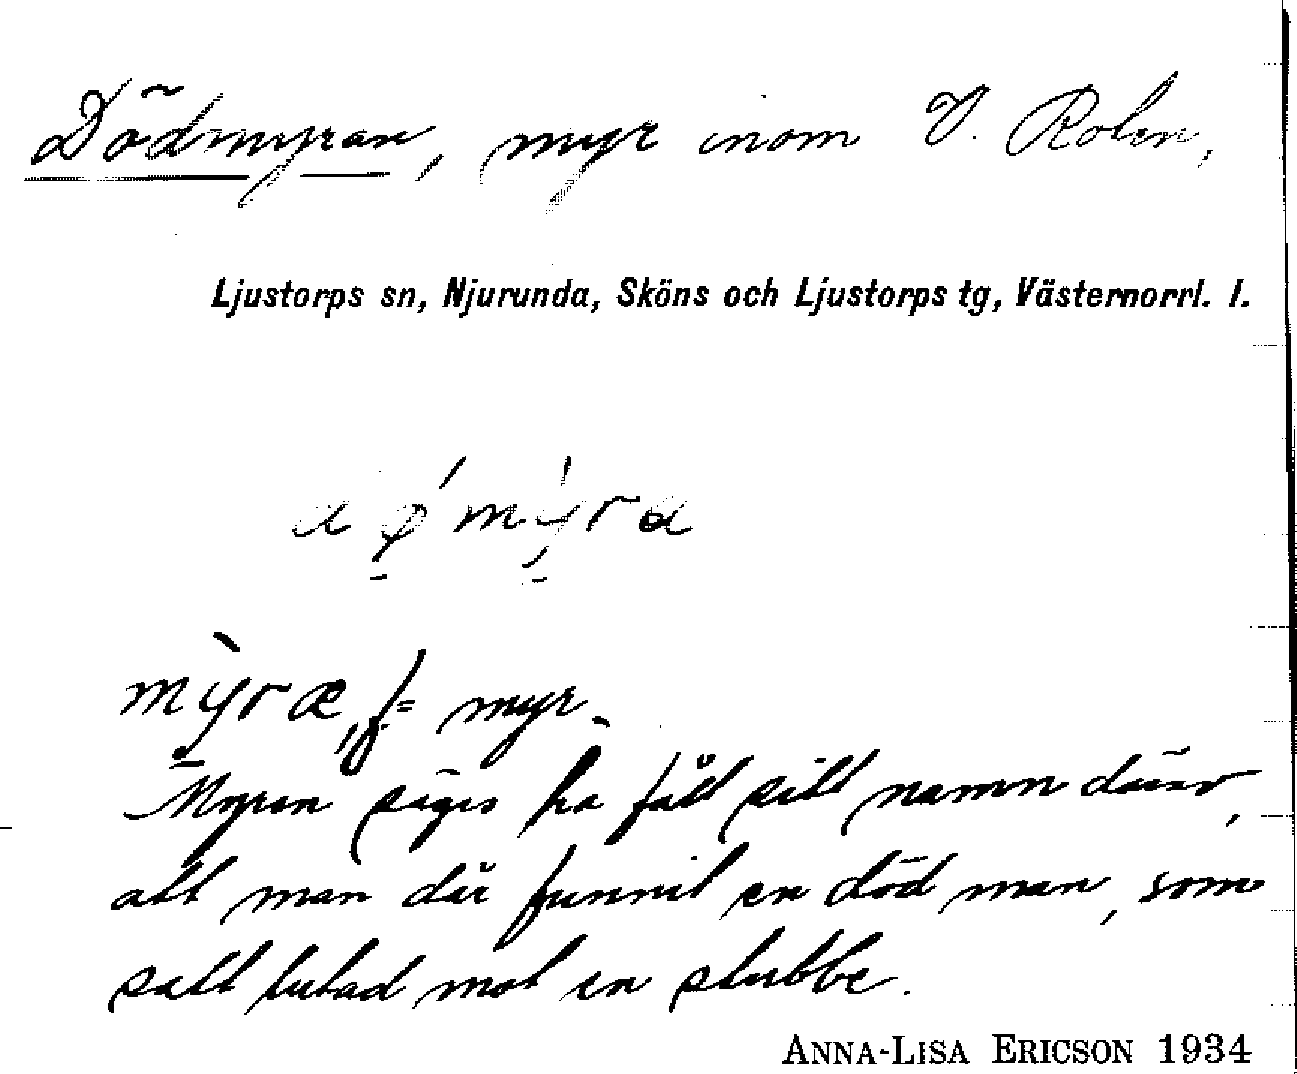 Dödmyran, myr inom V. Rolen,
Ljustorps sn, Njurunda, Sköns och Ljustorps tg, Västernorrl. l.
mỳræ, f = myr.
Myren säges ha fått sitt namn därav,
att man där funnit en död man, som
satt lutad mot en stubbe.
ANNA-LISA ERICSON 1934